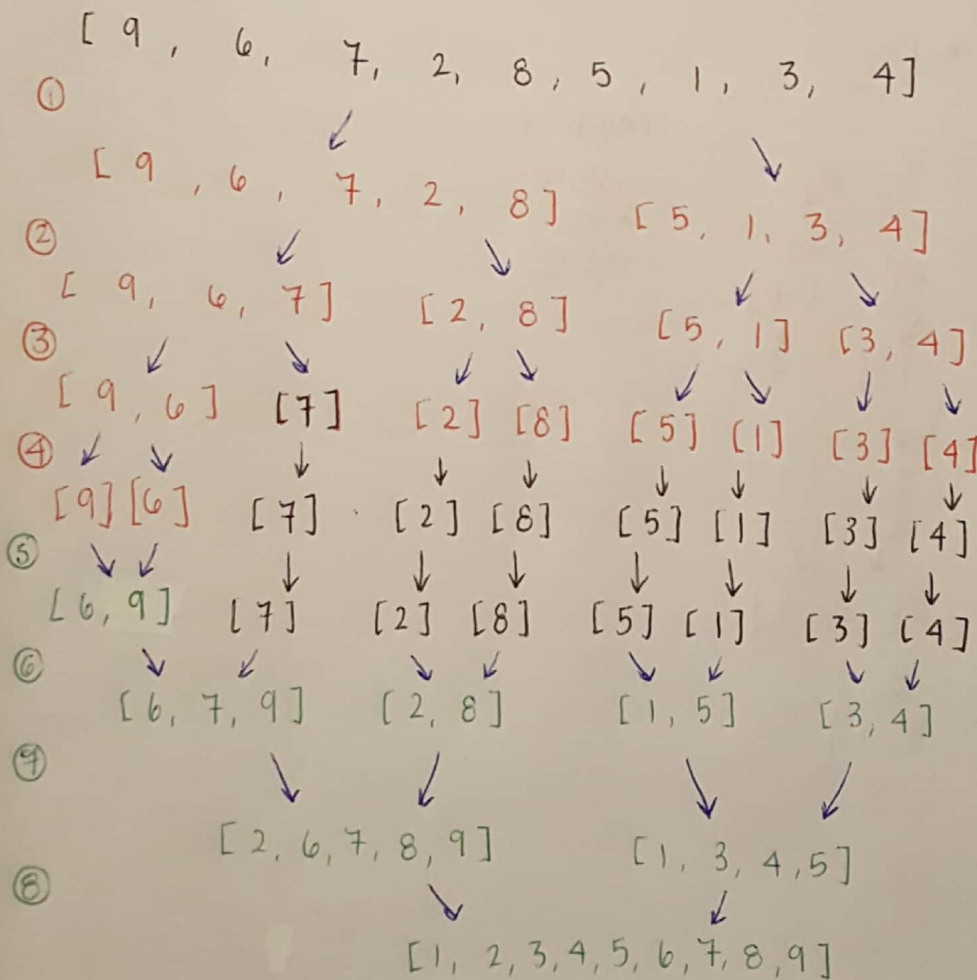 [ 9, 6, 7, 2, 8, 5, 1, 3, 4]
①
[ 9, 6, 7, 2, 8] [5, 1, 3, 4]
②
[ 9, 6, 7] [2, 8] [5, 1] [3, 4]
③
[ 9, 6] [7] [2] [8] [5] [1] [3] [4]
④
[9] [6] [7] [2] [8] [5] [1] [3] [4]
⑤
[6, 9] [7] [2] [8] [5] [1] [3] [4]
⑥
[6, 7, 9] [2, 8] [1, 5] [3, 4]
⑦
[2, 6, 7, 8, 9] [1, 3, 4, 5]
⑧
[1, 2, 3, 4, 5, 6, 7, 8, 9]